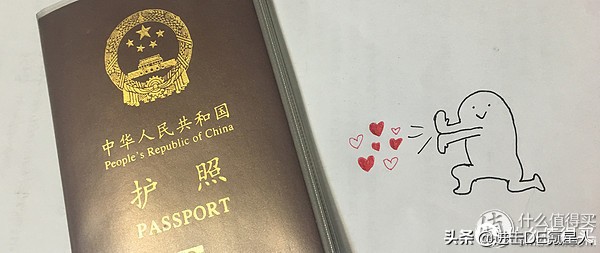 中华人民共和国
People's Republic of China
护照
PASSPORT
什么值得买
头条 @进击DE氪星人